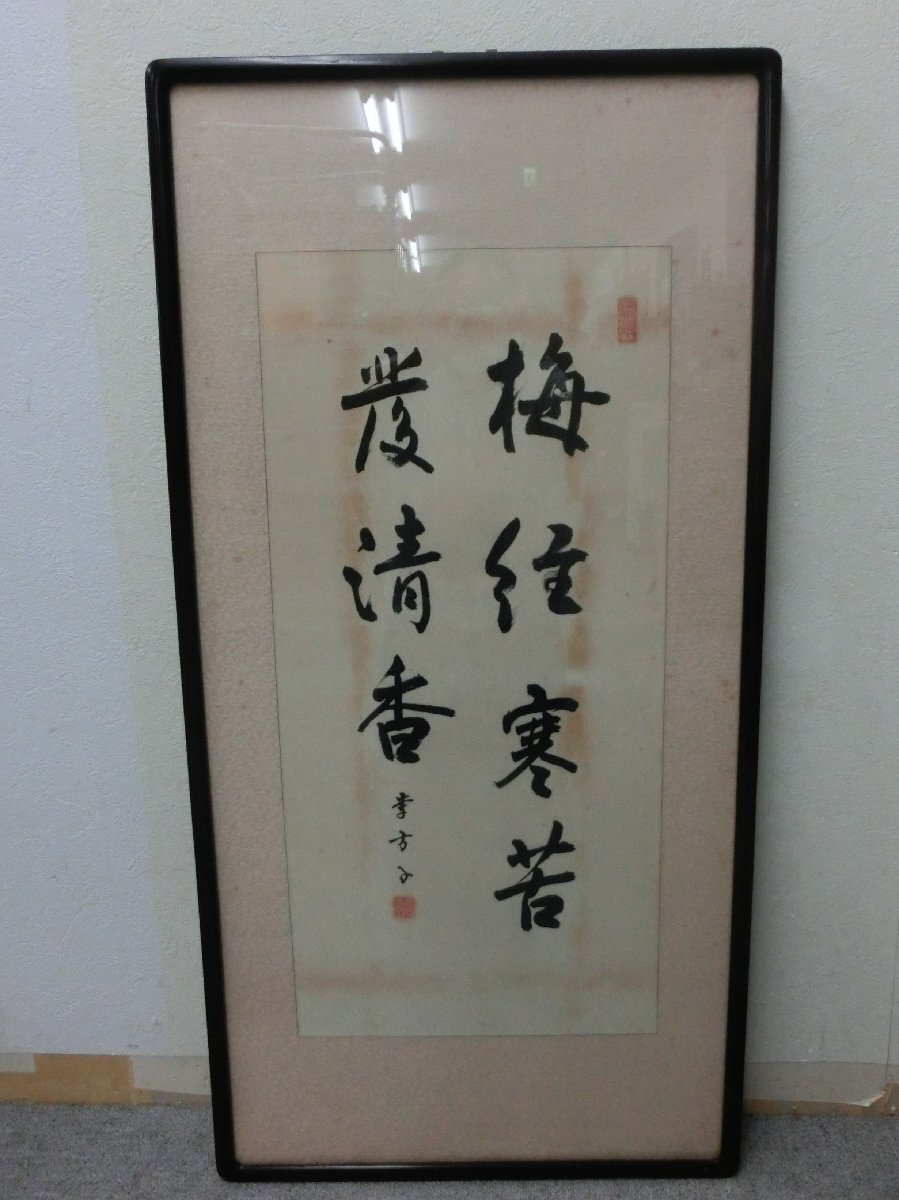 梅經寒苦
發清香
李方子